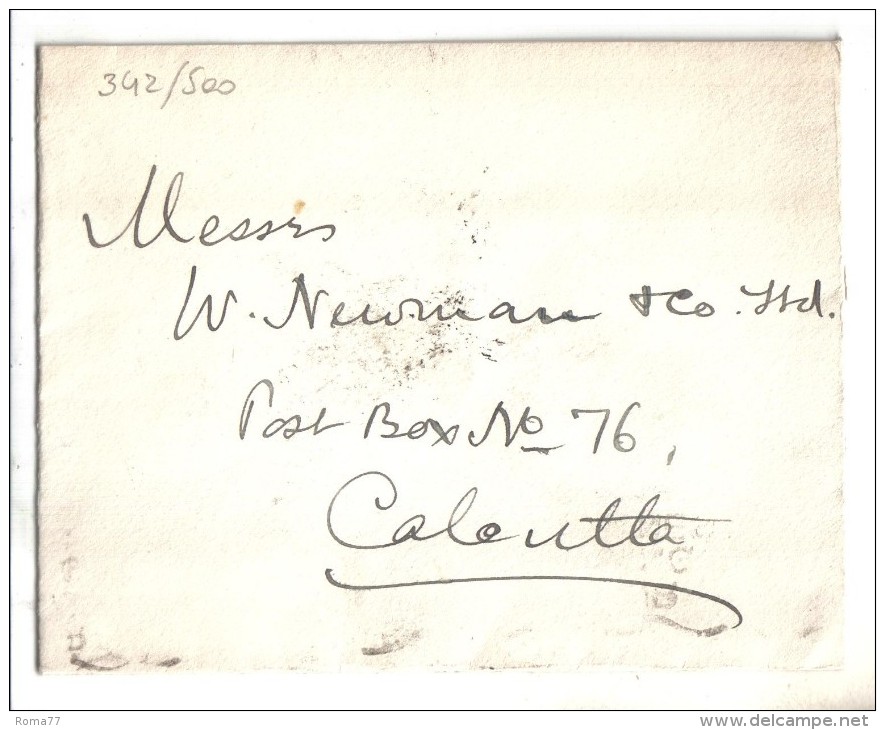 342/500
Messrs
W. Newman & Co. Ltd.
Post Box No 76,
Calcutta
Roma77
www.delcampe.net